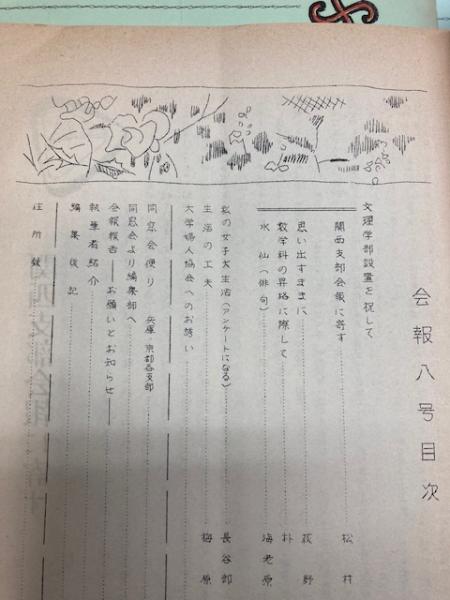 会報八号目次
文理学部設置を祝して
関西支部会報に寄す 松村
思い出すままに 荻野
数学科の昇格に際して 朴
水仙(俳句) 海老原
私の女子大生活(アンケートになる) 長谷部
生活の工夫 梅原
大学婦人協会へのお誘い
同窓会便り 兵庫 京都各支部
同窓会より編集部へ
会報報告――お願いとお知らせ――
執筆者紹介
編集後記
住所録